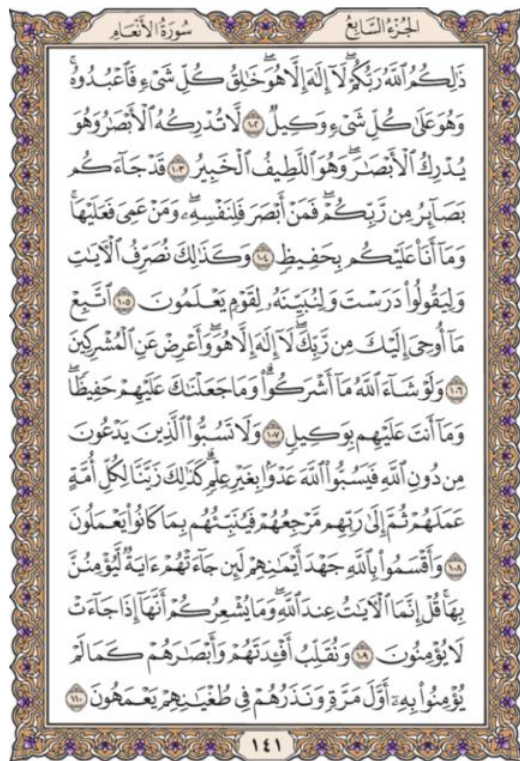 الجُزْءُ السَّابِعُ
سُورَةُ الأَنْعَامِ
ذَٰلِكُمُ ٱللَّهُ رَبُّكُمْ ۖ لَآ إِلَٰهَ إِلَّا هُوَ ۖ خَٰلِقُ كُلِّ شَىْءٍ فَٱعْبُدُوهُ ۚ
وَهُوَ عَلَىٰ كُلِّ شَىْءٍ وَكِيلٌ ١٠٢ لَّا تُدْرِكُهُ ٱلْأَبْصَٰرُ وَهُوَ
يُدْرِكُ ٱلْأَبْصَٰرَ ۖ وَهُوَ ٱللَّطِيفُ ٱلْخَبِيرُ ١٠٣ قَدْ جَآءَكُم
بَصَآئِرُ مِن رَّبِّكُمْ ۖ فَمَنْ أَبْصَرَ فَلِنَفْسِهِۦ ۖ وَمَنْ عَمِىَ فَعَلَيْهَا ۚ
وَمَآ أَنَا۠ عَلَيْكُم بِحَفِيظٍ ١٠٤ وَكَذَٰلِكَ نُصَرِّفُ ٱلْءَايَٰتِ
وَلِيَقُولُوا۟ دَرَسْتَ وَلِنُبَيِّنَهُۥ لِقَوْمٍ يَعْلَمُونَ ١٠٥ ٱتَّبِعْ
مَآ أُوحِىَ إِلَيْكَ مِن رَّبِّكَ ۖ لَآ إِلَٰهَ إِلَّا هُوَ ۖ وَأَعْرِضْ عَنِ ٱلْمُشْرِكِينَ
١٠٦ وَلَوْ شَآءَ ٱللَّهُ مَآ أَشْرَكُوا۟ ۗ وَمَا جَعَلْنَٰكَ عَلَيْهِمْ حَفِيظًا ۖ
وَمَآ أَنتَ عَلَيْهِم بِوَكِيلٍ ١٠٧ وَلَا تَسُبُّوا۟ ٱلَّذِينَ يَدْعُونَ
مِن دُونِ ٱللَّهِ فَيَسُبُّوا۟ ٱللَّهَ عَدْوًۢا بِغَيْرِ عِلْمٍ ۗ كَذَٰلِكَ زَيَّنَّا لِكُلِّ أُمَّةٍ
عَمَلَهُمْ ثُمَّ إِلَىٰ رَبِّهِم مَّرْجِعُهُمْ فَيُنَبِّئُهُم بِمَا كَانُوا۟ يَعْمَلُونَ
١٠٨ وَأَقْسَمُوا۟ بِٱللَّهِ جَهْدَ أَيْمَٰنِهِمْ لَئِن جَآءَتْهُمْ ءَايَةٌ لَّيُؤْمِنُنَّ
بِهَا ۚ قُلْ إِنَّمَا ٱلْءَايَٰتُ عِندَ ٱللَّهِ ۖ وَمَا يُشْعِرُكُمْ أَنَّهَآ إِذَا جَآءَتْ
لَا يُؤْمِنُونَ ١٠٩ وَنُقَلِّبُ أَفْـِٔدَتَهُمْ وَأَبْصَٰرَهُمْ كَمَا لَمْ
يُؤْمِنُوا۟ بِهِۦٓ أَوَّلَ مَرَّةٍ وَنَذَرُهُمْ فِى طُغْيَٰنِهِمْ يَعْمَهُونَ ١١٠
١٤١